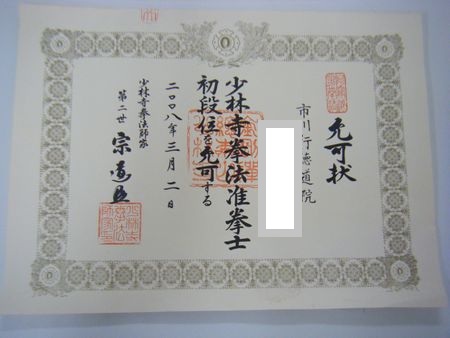 免可状
市川行徳道院
少林寺拳法准拳士
初段位を免可する
二〇〇八年三月二日
少林寺拳法師家
第二世 宗道臣